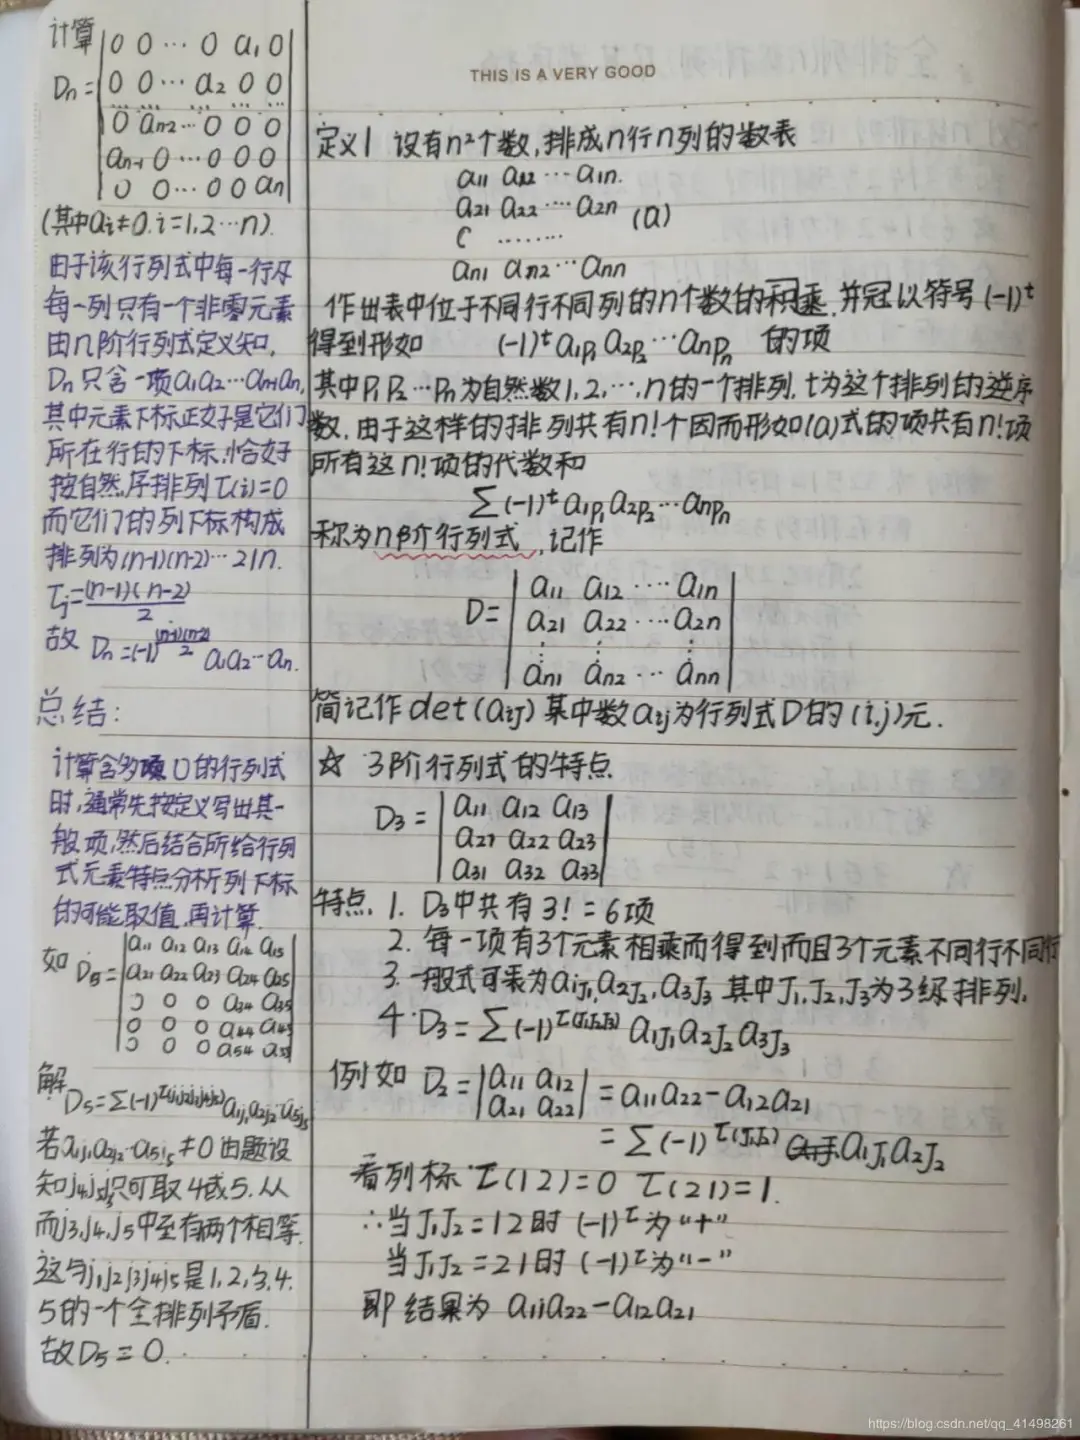 计算
Dn = |0 0 ⋯ 0 a₁ 0|
|0 0 ⋯ a₂ 0 0|
⋯ ⋯ ⋯ ⋯ ⋯
|0 an-2 ⋯ 0 0 0|
|an-1 0 ⋯ 0 0 0|
|0 0 ⋯ 0 0 an|
(其中ai≠0.i=1,2⋯n).
由于该行列式中每一行及
每一列只有一个非零元素
由n阶行列式定义知,
Dn只含一项a₁a₂⋯an-1an,
其中元素下标正好是它们
所在行的下标.恰好
按自然序排列τ(i)=0
而它们的列下标构成
排列为(n-1)(n-2)⋯21n.
τj=(n-1)(n-2)/2
故 Dn=(-1)^((n-1)(n-2)/2) a₁a₂⋯an.
总结:
计算含多项0的行列式
时,通常先按定义写出其一
般项,然后结合所给行列
式元素特点分析列下标
的可能取值,再计算.
如 D5=|a11 a12 a13 a14 a15|
|a21 a22 a23 a24 a25|
|0 0 0 a34 a35|
|0 0 0 a44 a45|
|0 0 0 a54 a55|
解
D5=Σ(-1)^τ(j1j2j3j4j5) a1j1a2j2⋯a5j5
若a1j1a2j2⋯a5j5≠0由题设
知j4j5只可取4或5.从
而j3,j4,j5中至有两个相等.
这与j1j2j3j4j5是1,2,3,4.
5的一个全排列矛盾.
故D5=0.
THIS IS A VERY GOOD
定义1 设有n²个数,排成n行n列的数表
a11 a12 ⋯ a1n.
a21 a22 ⋯ a2n (a)
⋯⋯⋯
an1 an2 ⋯ ann
作出表中位于不同行不同列的n个数的积乘,并冠以符号(-1)^t
得到形如 (-1)^t a1p1 a2p2 ⋯ anpn 的项
其中P1P2⋯Pn为自然数1,2,⋯,n的一个排列,t为这个排列的逆序
数,由于这样的排列共有n!个因而形如(a)式的项共有n!项
所有这n!项的代数和
Σ(-1)^t a1p1 a2p2 ⋯ anpn
称为n阶行列式,记作
D=|a11 a12 ⋯ a1n|
|a21 a22 ⋯ a2n|
⋮ ⋮ ⋮
|an1 an2 ⋯ ann|
简记作det(aij)其中数aij为行列式D的(i,j)元.
☆ 3阶行列式的特点
D3=|a11 a12 a13|
|a21 a22 a23|
|a31 a32 a33|
特点. 1. D3中共有3!=6项
2. 每一项有3个元素相乘而得到而且3个元素不同行不同行
3. 一般式可表为a1J1,a2J2,a3J3 其中J1,J2,J3为3级排列.
4. D3=Σ(-1)^τ(J1J2J3) a1J1a2J2a3J3
例如 D2=|a11 a12|=a11a22-a12a21
|a21 a22|
=Σ(-1)^τ(J1J2) a1J1a2J2
看列标 τ(12)=0 τ(21)=1.
∴当J1J2=12时 (-1)^τ为“+”
当J1J2=21时 (-1)^τ为“-”
即结果为 a11a22-a12a21
https://blog.csdn.net/qq_41498261